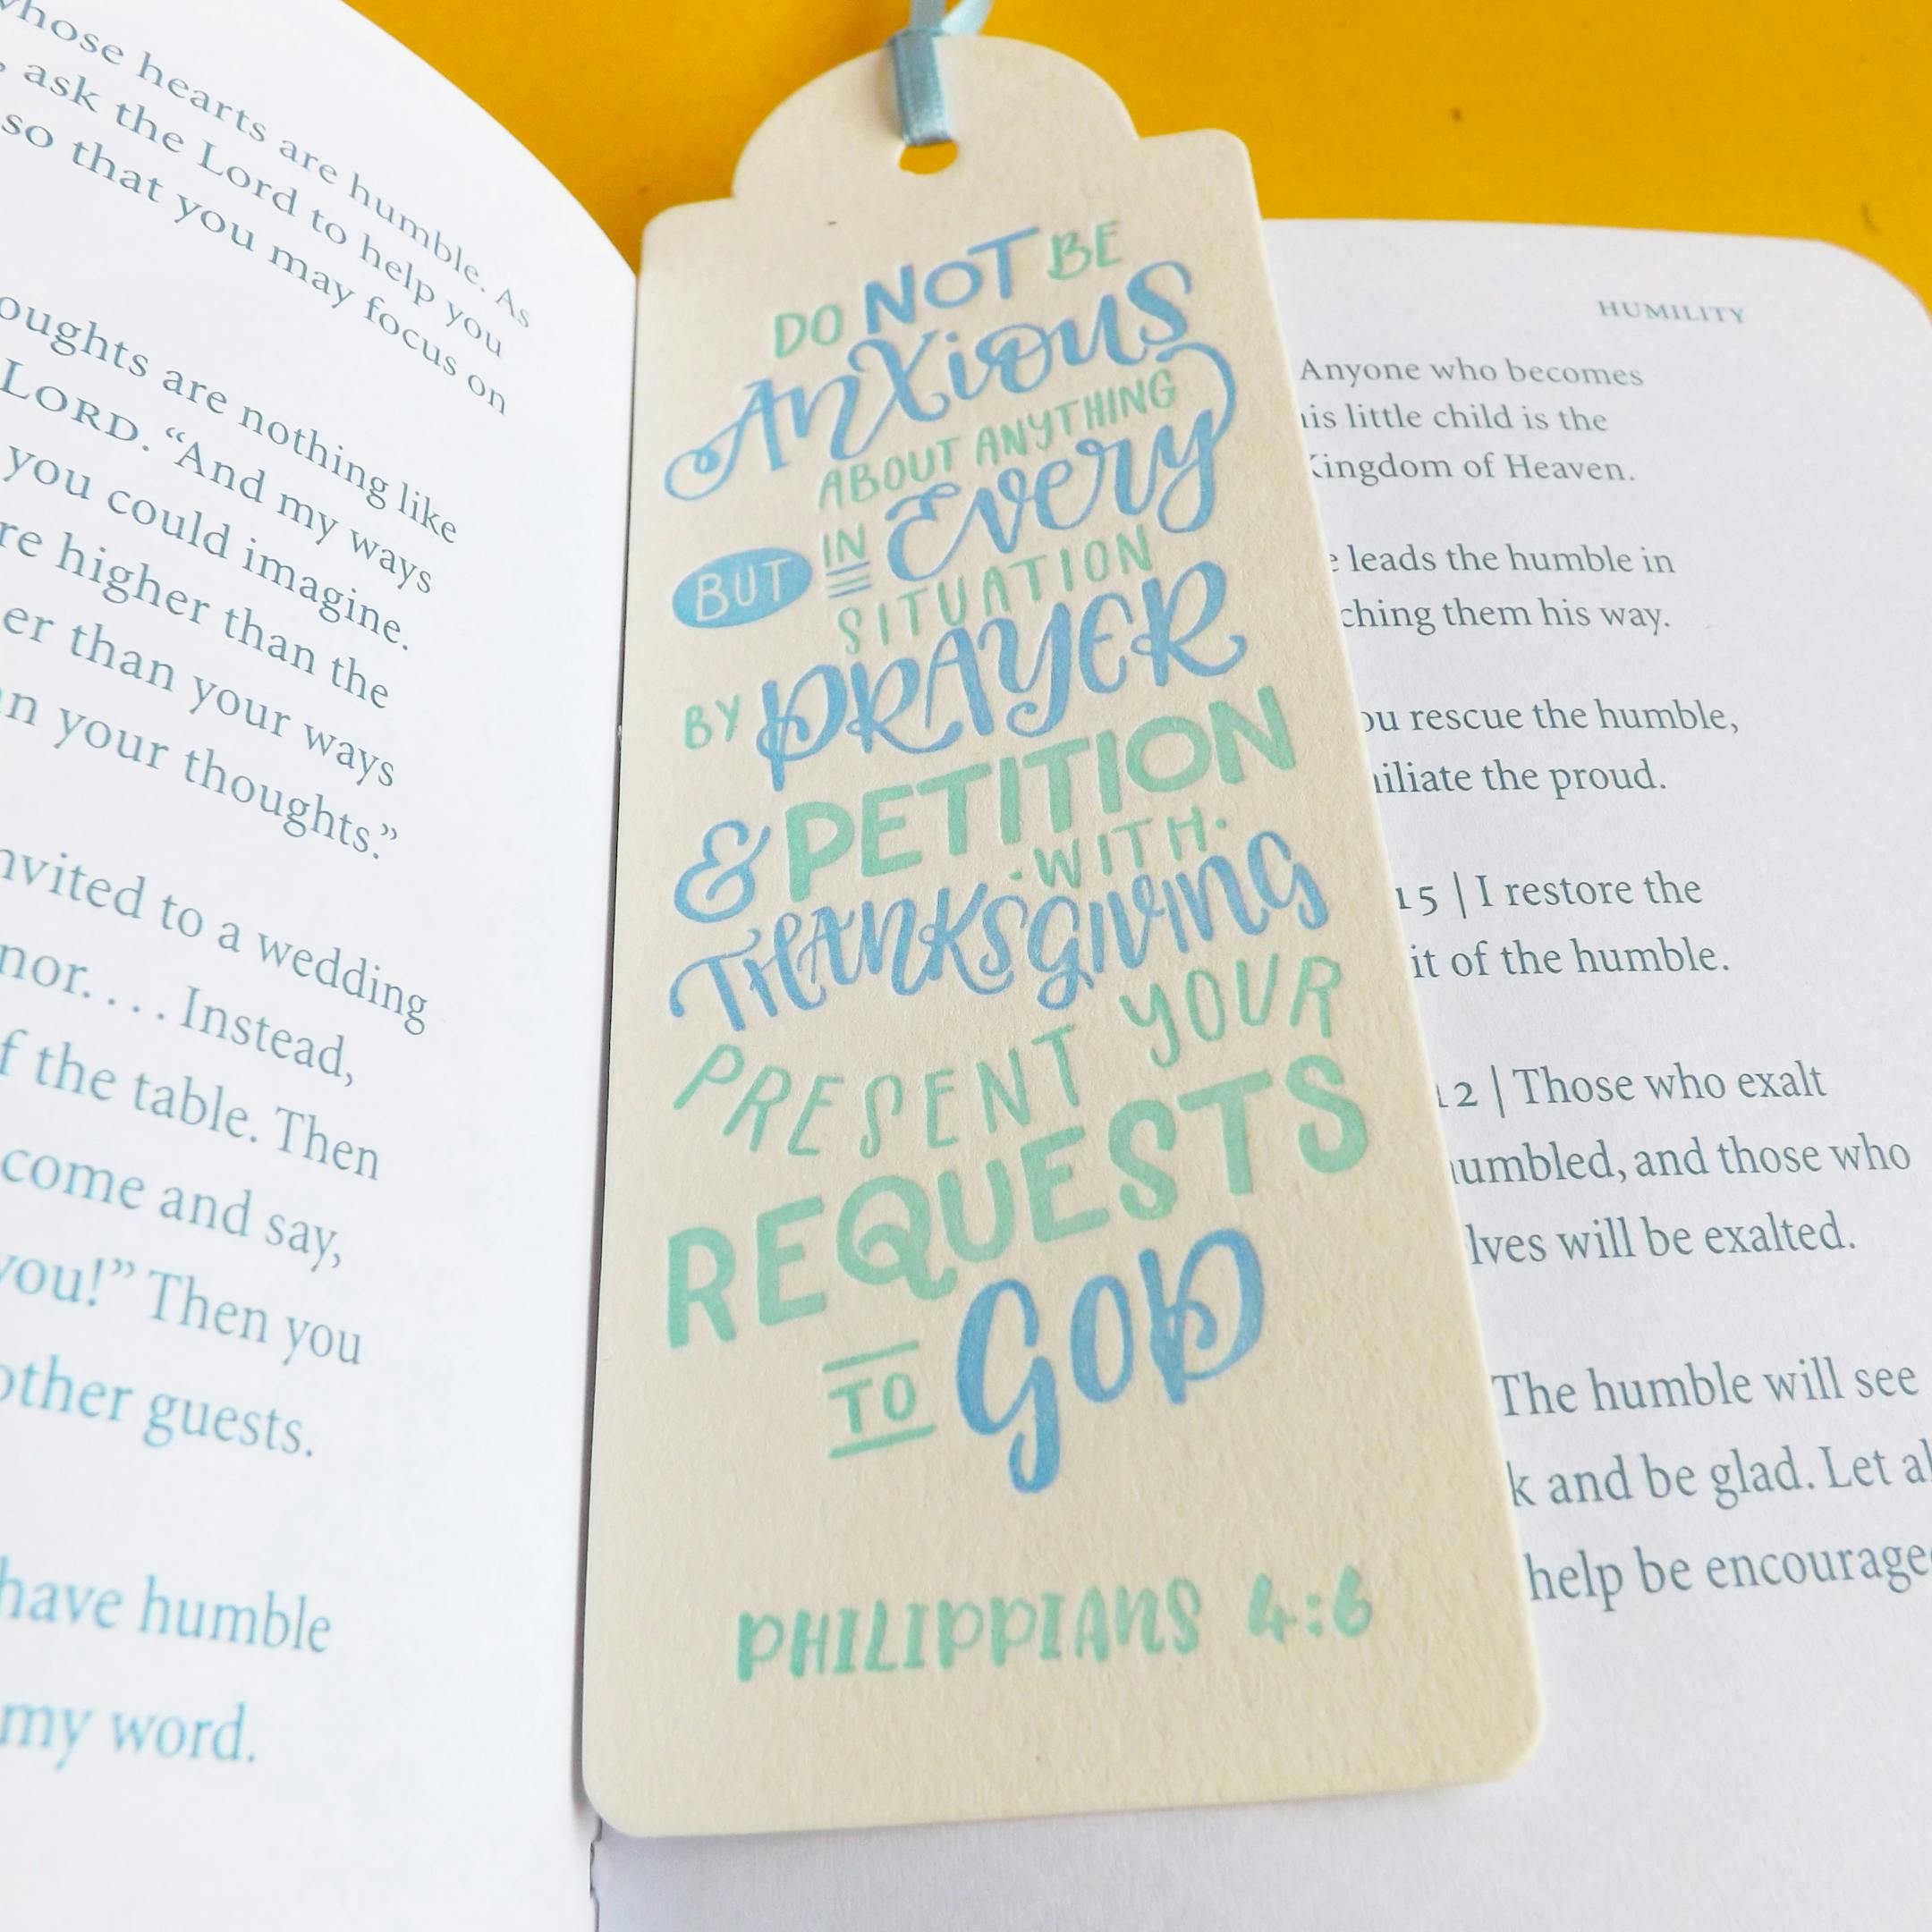 hose hearts are humble. As
ask the Lord to help you
so that you may focus on
oughts are nothing like
LORD. “And my ways
you could imagine.
re higher than the
er than your ways
n your thoughts.”
nvited to a wedding
nor. . . . Instead,
f the table. Then
come and say,
you!” Then you
other guests.
have humble
my word.
DO NOT BE
ANXIOUS
ABOUT ANYTHING
BUT IN EVERY
SITUATION
BY PRAYER
& PETITION
·WITH·
THANKSGIVING
PRESENT YOUR
REQUESTS
TO GOD
PHILIPPIANS 4:6
HUMILITY
Anyone who becomes
is little child is the
Kingdom of Heaven.
e leads the humble in
ching them his way.
ou rescue the humble,
iliate the proud.
15 | I restore the
it of the humble.
12 | Those who exalt
umbled, and those who
lves will be exalted.
The humble will see
k and be glad. Let al
help be encourage